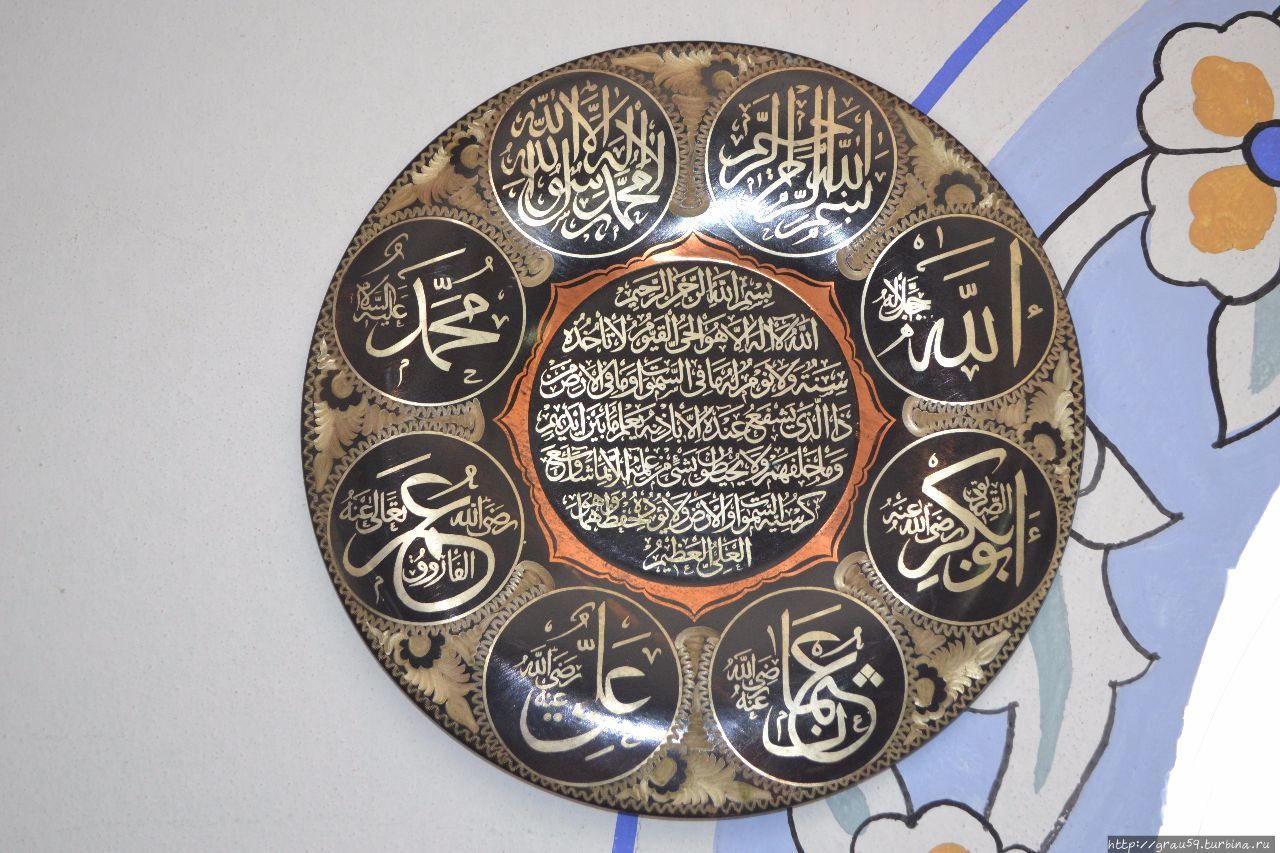 بسم الله الرحمن الرحيم
لا اله الا الله محمد رسول الله
الله
جل جلاله
محمد
عليه السلام
أبو بكر
الصديق
رضي الله عنه
عمر
الفاروق
رضي الله تعالى عنه
عثمان
رضي الله عنه
علي
رضي الله عنه
بسم الله الرحمن الرحيم
الله لا اله الا هو الحي القيوم لا تأخذه
سنة ولا نوم له ما في السموات وما في الارض من
ذا الذي يشفع عنده الا باذنه يعلم ما بين ايديهم
وما خلفهم ولا يحيطون بشئ من علمه الا بما شاء وسع
كرسيه السموات والارض ولا يؤده حفظهما وهو
العلي العظيم
http://grau59.turbina.ru